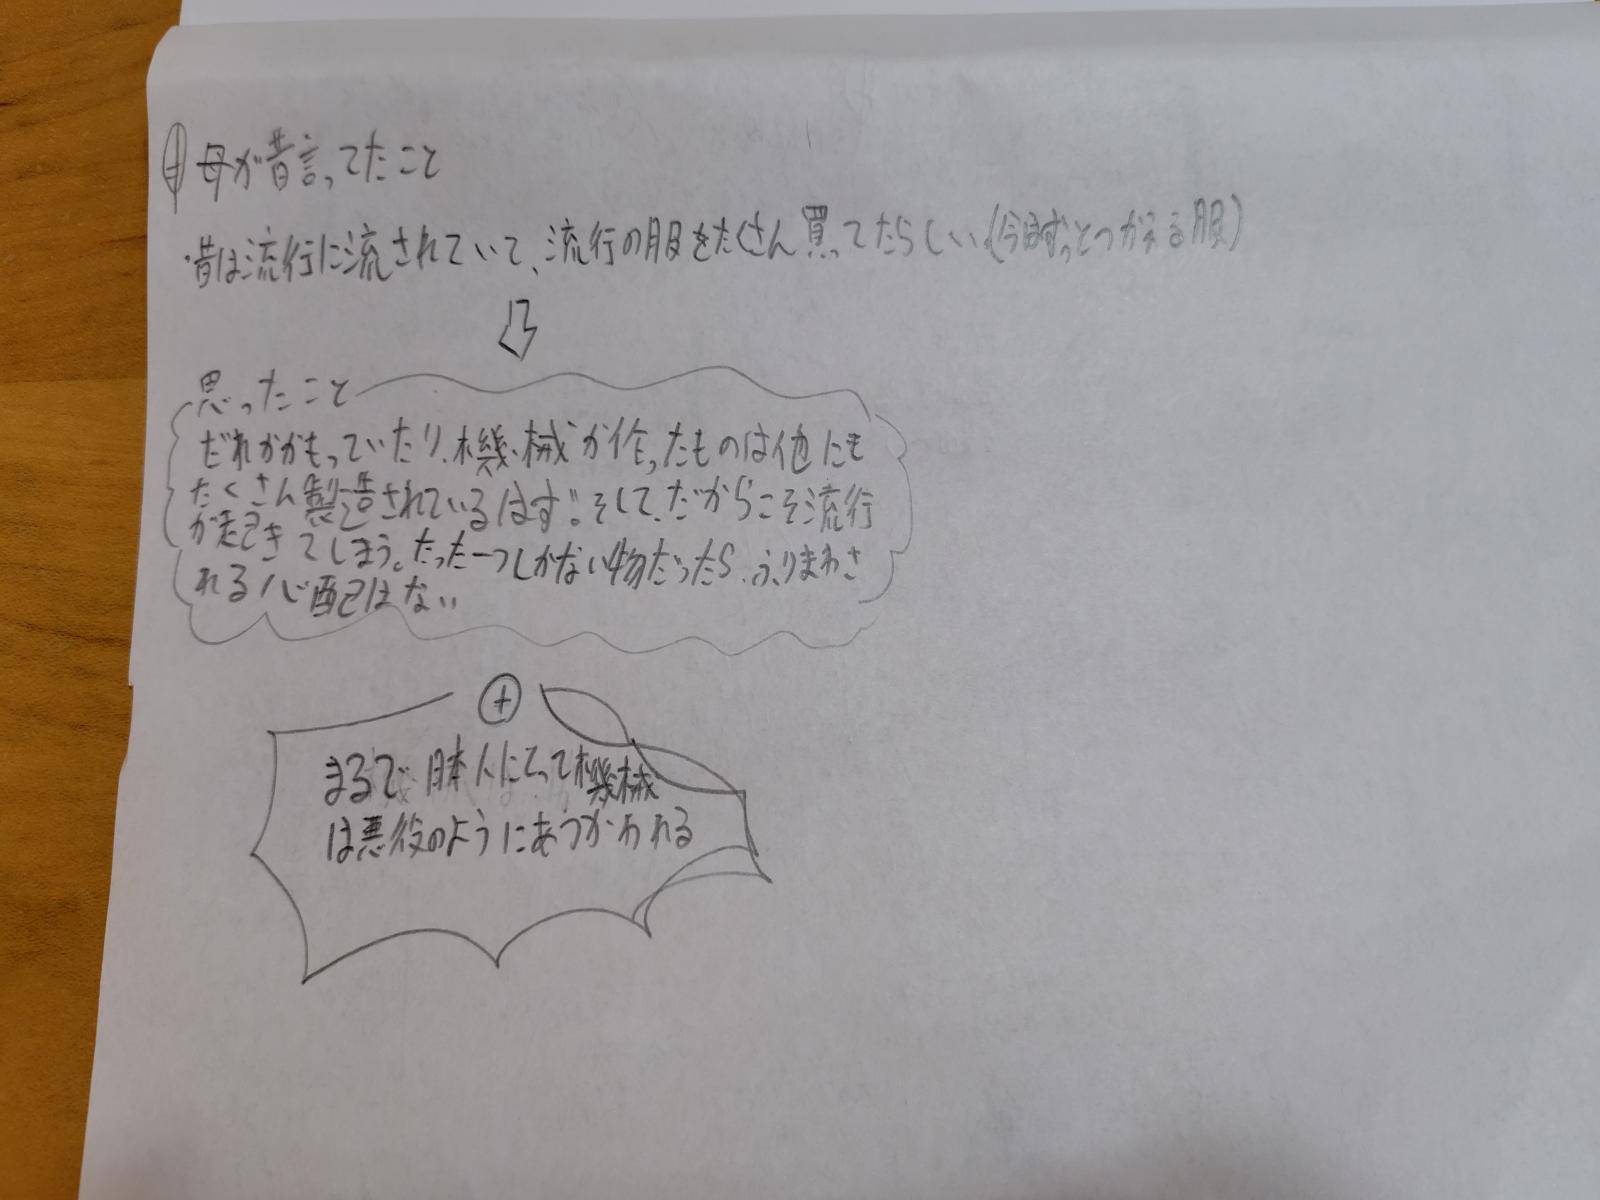 母が昔言ってたこと
・昔は流行に流されていて、流行の服をたくさん買ってたらしい(今はずっとつかえる服)
思ったこと
だれかがもっていたり、機械が作ったものは他にも
たくさん製造されているはず!!そして、だからこそ流行
が起きてしまう。たった一つしかない物だったら、ふりまわさ
れる心配はない
+
まるで日本人にとって機械
は悪役のようにあつかわれる